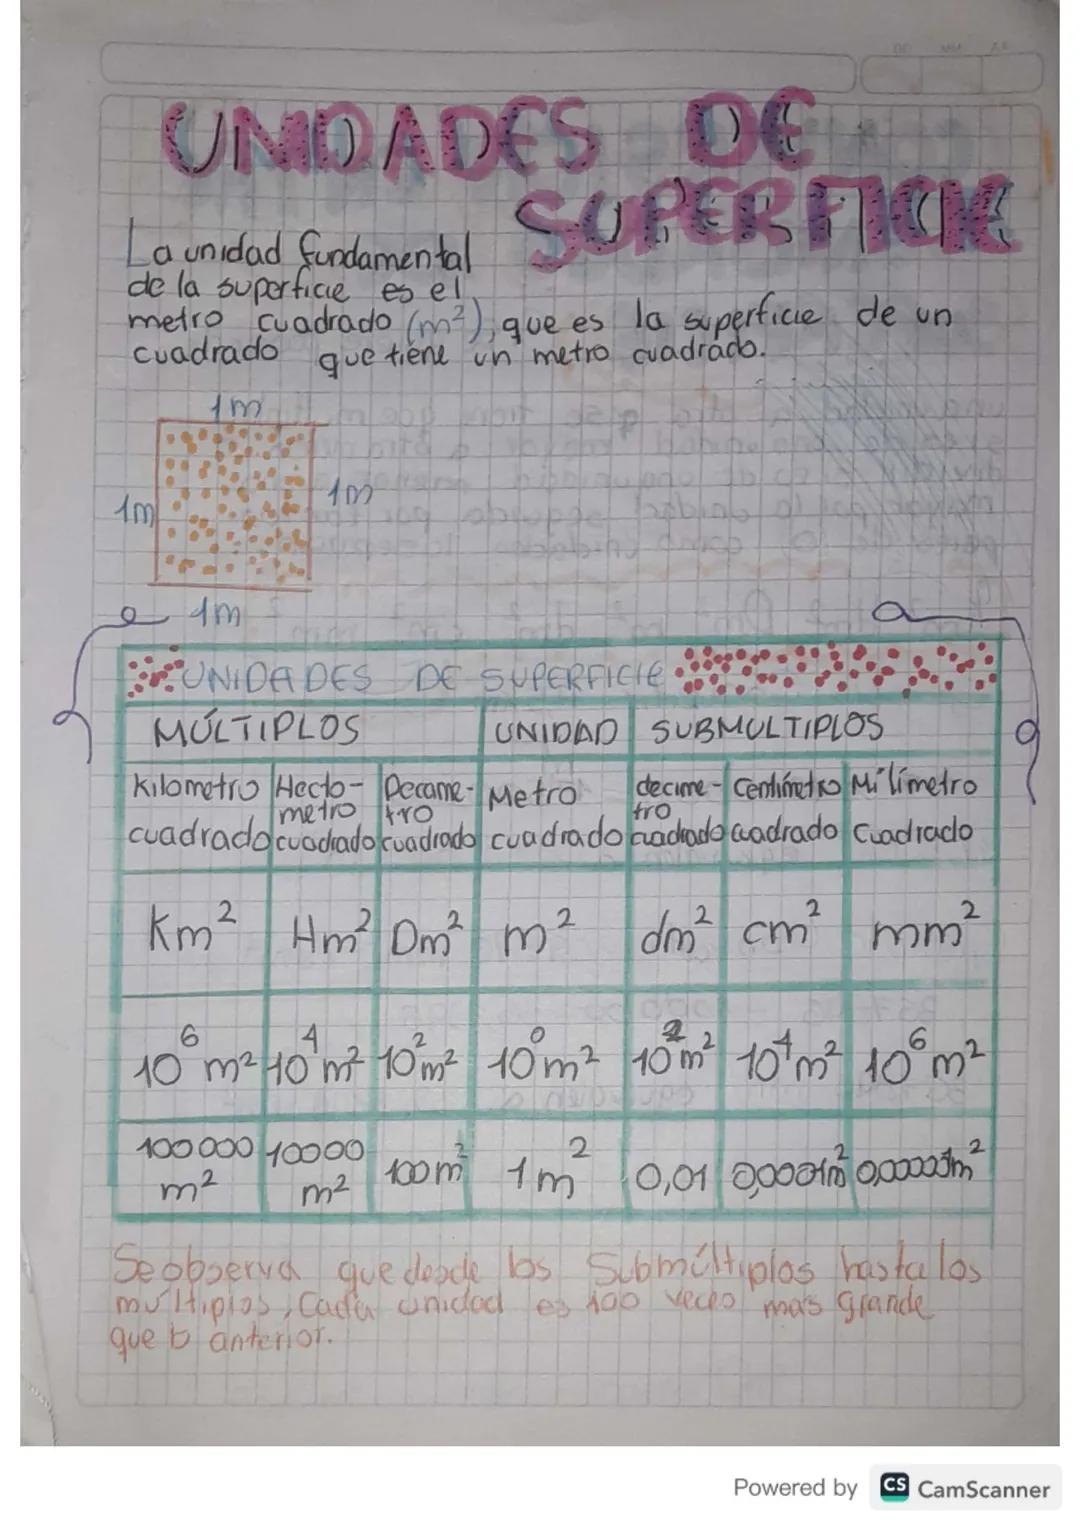 UNIDADES DE
SUPERFICIE
La unidad fundamental
de la superficie es el
metro cuadrado (m²), que es la superficie de un
cuadrado que tiene un metro cuadrado.
1m
1m 1m
1m
UNIDADES DE SUPERFICIE
MÚLTIPLOS UNIDAD SUBMULTIPLOS
Kilometro cuadrado Hecto-metro cuadrado Decame-tro cuadrado Metro cuadrado decime-tro cuadrado Centímetro cuadrado Milímetro cuadrado
Km² Hm² Dm² m² dm² cm² mm²
10⁶ m² 10⁴ m² 10² m² 10⁰ m² 10² m² 10⁴ m² 10⁶ m²
100000 m² 10000 m² 100 m² 1 m² 0,01 0,0001m² 0,000001m²
Se observa que desde los Submúltiplos hasta los
multiplos, Cada unidad es 100 veces más grande
que lo anterior.
Powered by CS CamScanner